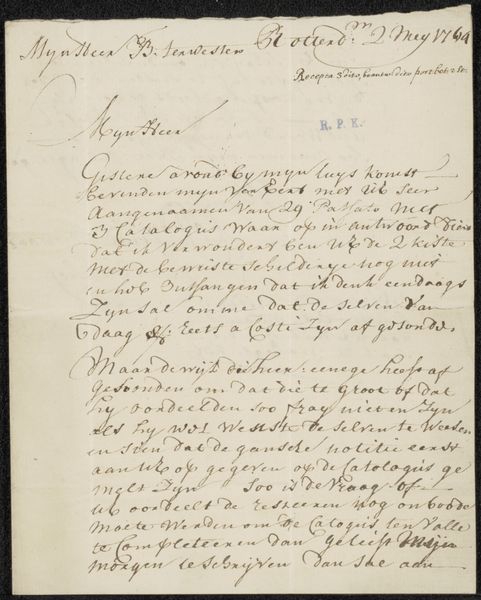 MynHeer B. terwesten Rotterd:m 2 Mey 1764
Recepta 3 dito, beantw: dito port
R. P. K.
MynHeer
Gistere avont by myn tuys komst
bevinden myn vereert met UE seer
Aangenaamen Van 29 Passato met
3 Catalogus waar op in antwoord
dat ik verwondert ben UE de 2 kiste
met de bewuste schilderye nog niet
en heb Ontfangen dat ik denk eendaags
Zyn sal om me dat deselven Van
daag reets a Costi Zyn af gesonde
Maar dewyl dis heer eenege heeft af
gesonden om dat die te groot of dat
hy oordeelden soo fray niet en Zyn
als hy wel de selven te Weesen
en sien dat de gansche notitie eerst
aan UE op gegeven op de Catologus ge
melt Zyn soo is de Vraag of
UE oordeelt de resteeren nog
moete werden om de Catogus ten Valle
te Completeeren dan gelieft Mijn
morgen te schrijven dan sal